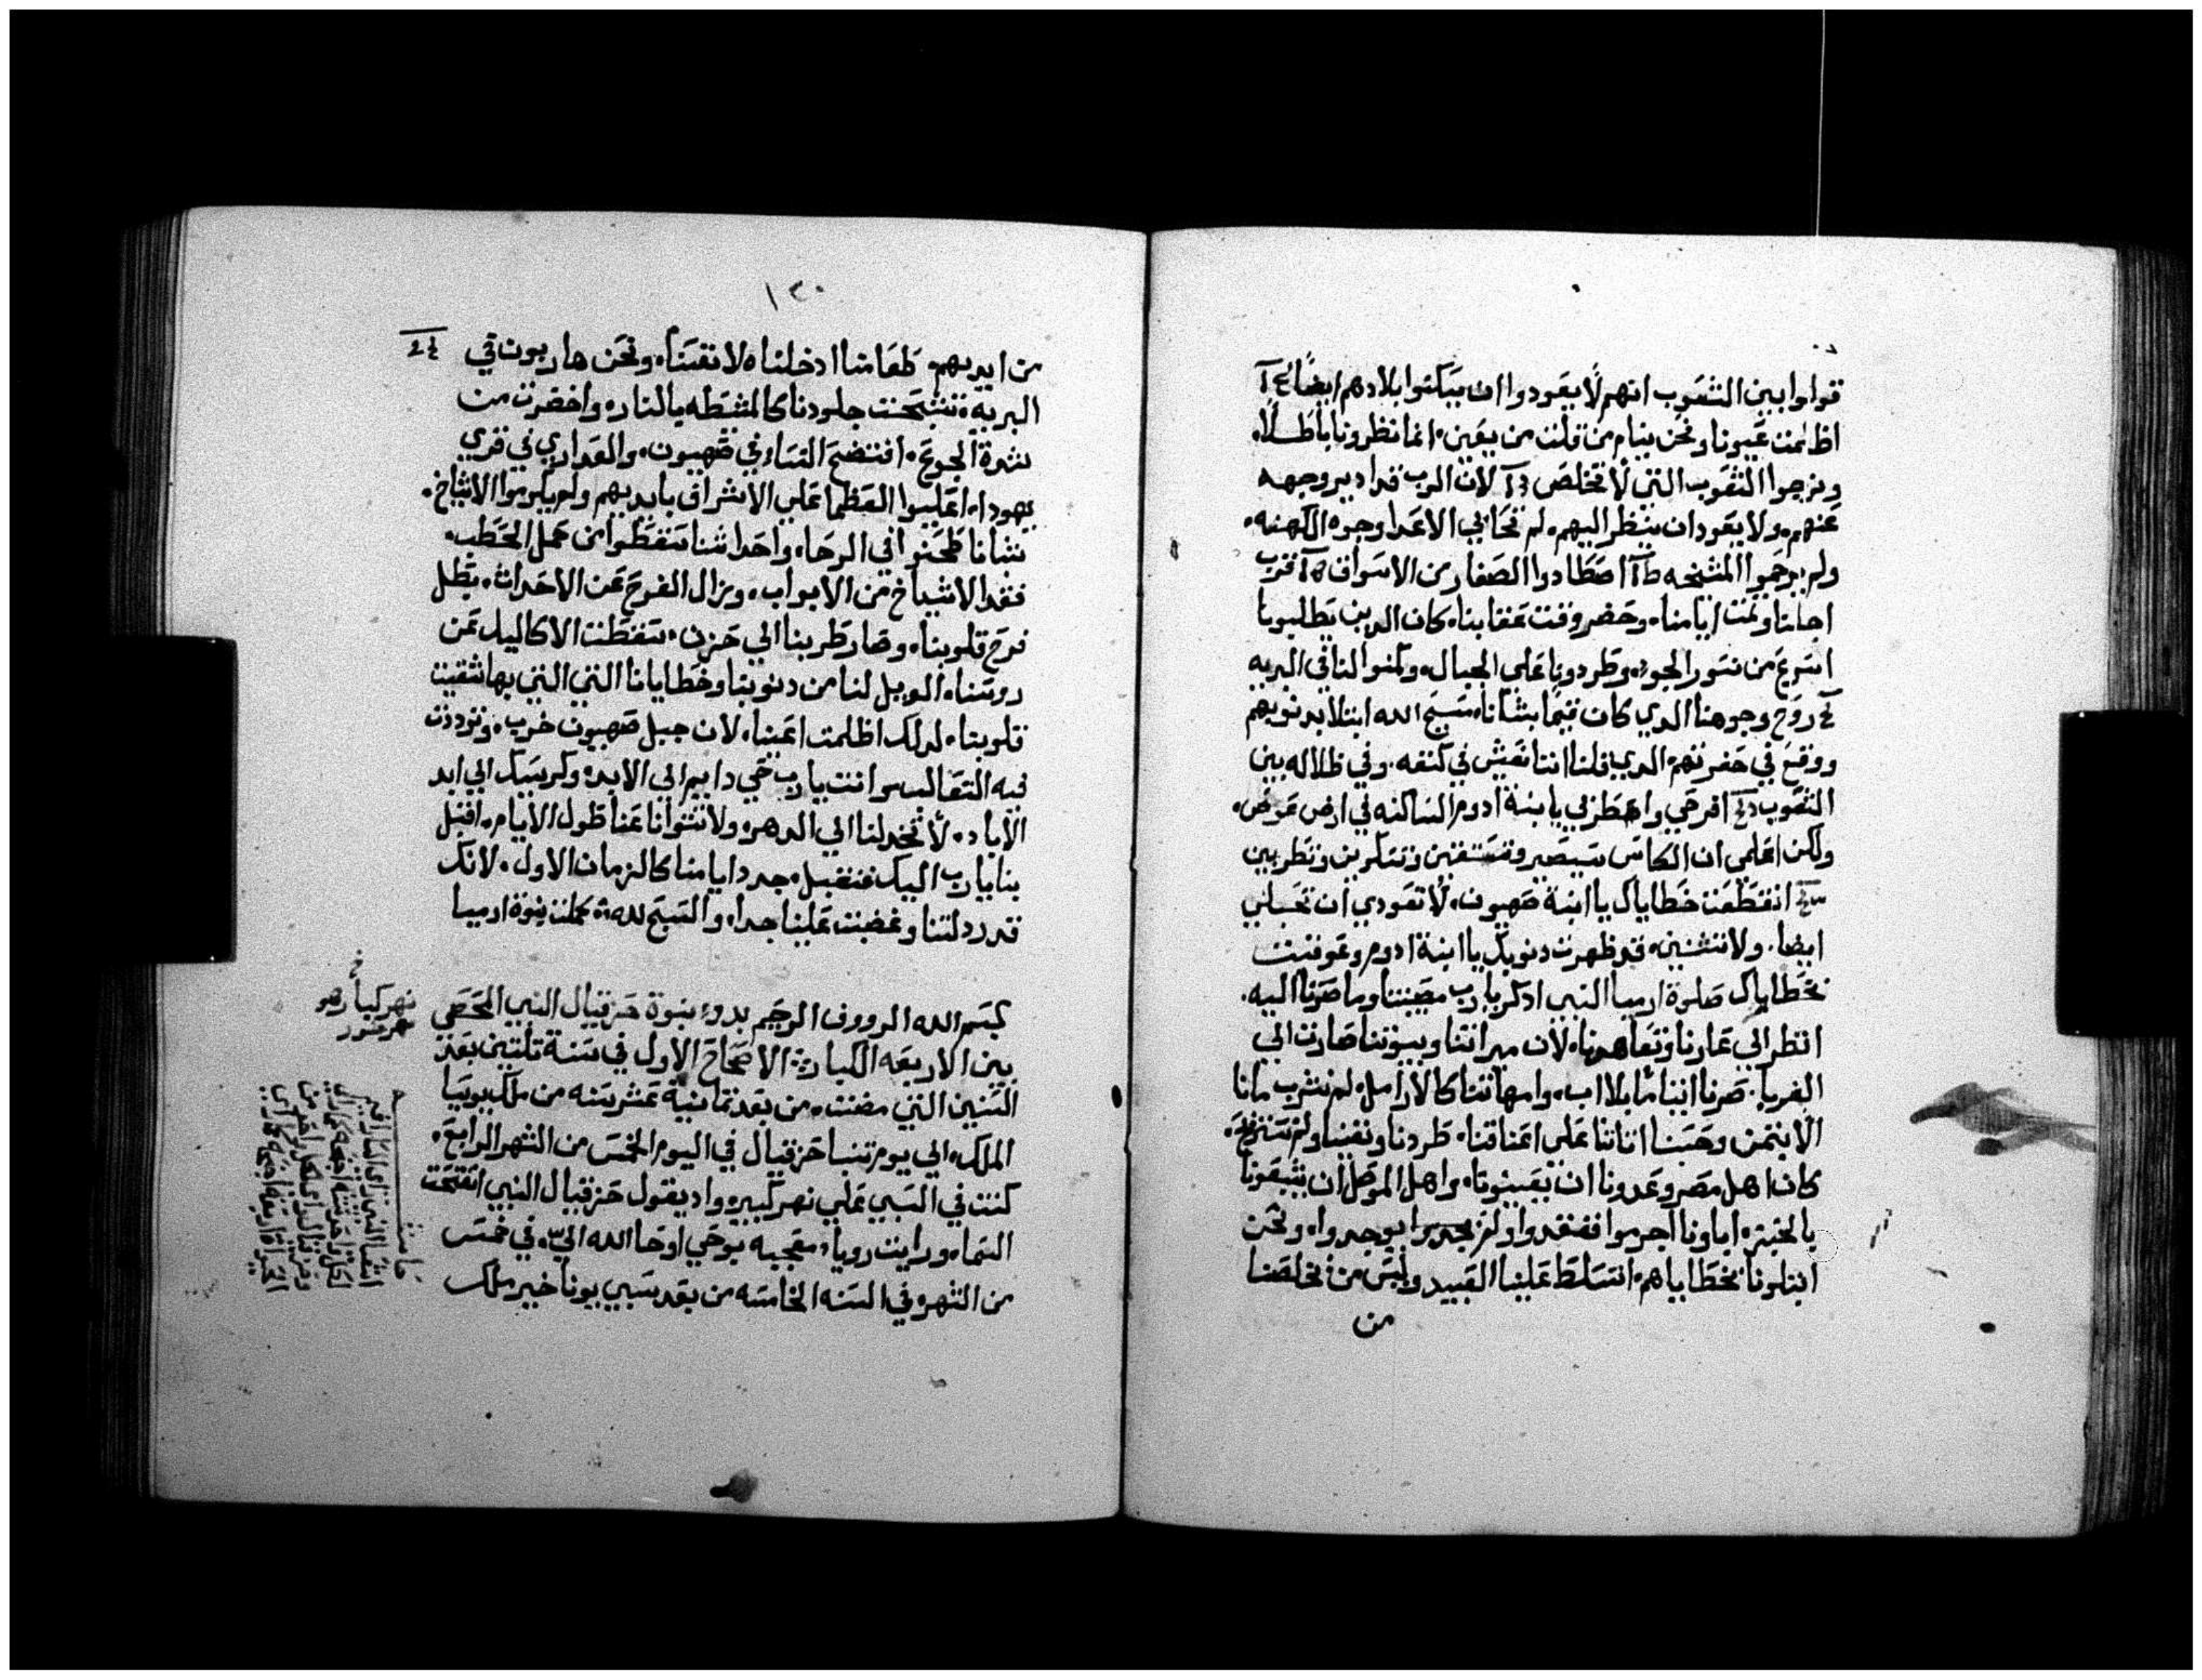 قولوا بين الشعوب انهم لا يعودوا ان يسكنوا بلادهم ايضا
اظلمت عيوننا ونحن بنيام من قلت من يعين. انما نظرونا باطلا.
ونرجوا الشعوب التي لا تخلص لان الرب قد ادبر وجهه
عنهم. ولا يعود ان ينظر اليهم. لم تحابي الاعدا وجوه الكهنه.
ولم يرحموا المشيخه اصطادوا الصغار من الاسواق قرب
اجلنا وتمت ايامنا. وحضر وقت عقابنا. كان الدين يطلبونا
اسرع من نسور الجو. وطردونا على الجبال. وكمنوا لنا في البريه
روح وجوهنا الدي كان قيما بشاننا. مسيح الله ابتلا بدنوبهم
ووقع في حفرتهم الدي قلنا اننا نعيش في كنفه. وفي ظلاله بين
الشعوب افرحي واهطزي يا ابنة ادوم الساكنه في ارض عوض.
ولكن اعلمي ان الكاس سيصير وتستقين وتسكرين وتطربين
انقطعت خطاياك يا ابنة صهيون. لا تعودي ان تحبلي
ايضا. ولا تنشنين. قد ظهرت دنوبك يا ابنة ادوم وعوقبت
بخطاياك صلوة ارميا النبي ادكر يا رب مصيبتنا وما صرنا اليه.
انظر الي عارنا وتعاهدنا. لان ميراتنا وبيوتنا صارت الي
الغربا. صرنا ايتاما بلا اب. وامهاتنا كالارامل. لم نشرب مانا
الا بتمن وحسنا اتانا على اعناقنا. طردنا وتعبنا ولم نستريح.
كان اهل مصر وعدونا ان يغيثونا. واهل الموصل ان يشبعونا
بالخبز. اباونا اجرموا ففقدوا ولم يوجدوا. ونحن
ابتلونا بخطاياهم. اتسلط علينا العبيد وليس من يخلصنا
من
١٢٠
من ايديهم. طعامنا ادخلناه لانفسنا. ونحن هاربون في
البريه. تشبحت جلودنا كالمشطه بالنار. واخضرت من
شدة الجوع. افتضح النساء في صهيون. والعداري في قري
يهودا. اعلبوا العظما على الاشراق بايديهم ولم يكرموا الاشياخ.
نشانا طحنوا في الرحا. واحداثنا سقطوا من حمل الحطب.
فقد الاشياخ من الابواب. ويزال الفرح عن الاحداث. بطل
فرح قلوبنا. وصار طربنا الي حزن. سقطت الاكاليل عن
روسنا. الويل لنا من دنوبنا وخطايانا التي التي بها شقيت
قلوبنا. لدلك اظلمت اعيننا. لان جبل صهيون خرب. وترددت
فيه التعالب. وانت يا رب حي دايم الى الابد. وكرسيك الي ابد
الاباد. لا تخدلنا الي الدهر. ولا تتوانا عنا طول الايام. اقبل
بنا يا رب اليك فنقبل. جدد ايامنا كالزمان الاول. لانك
قد رددلتنا وغضبت علينا جدا. والسبح لله. كملت نبوة ارميا
بسم الله الرووف الرحيم بدوء نبوة حزقيال النبي المحصي
بين الاربعه الكبار الاصحاح الاول في سنة تلتين بعد
السنين التي مضت. من بعد تمانية عشر سنه من ملك يوسيا
الملك. الي يوم تنبا حزقيال في اليوم الخمس من الشهر الرابع.
كنت في السبي علي نهر كبير. واد يقول حزقيال النبي انفتحت
السماء. ورايت رويا. معجبه بوحي اوحا الله الي. في خمس
من الشهر. في السنه الخامسه من بعد سبي يوناخير ملك
نهر كبار هو